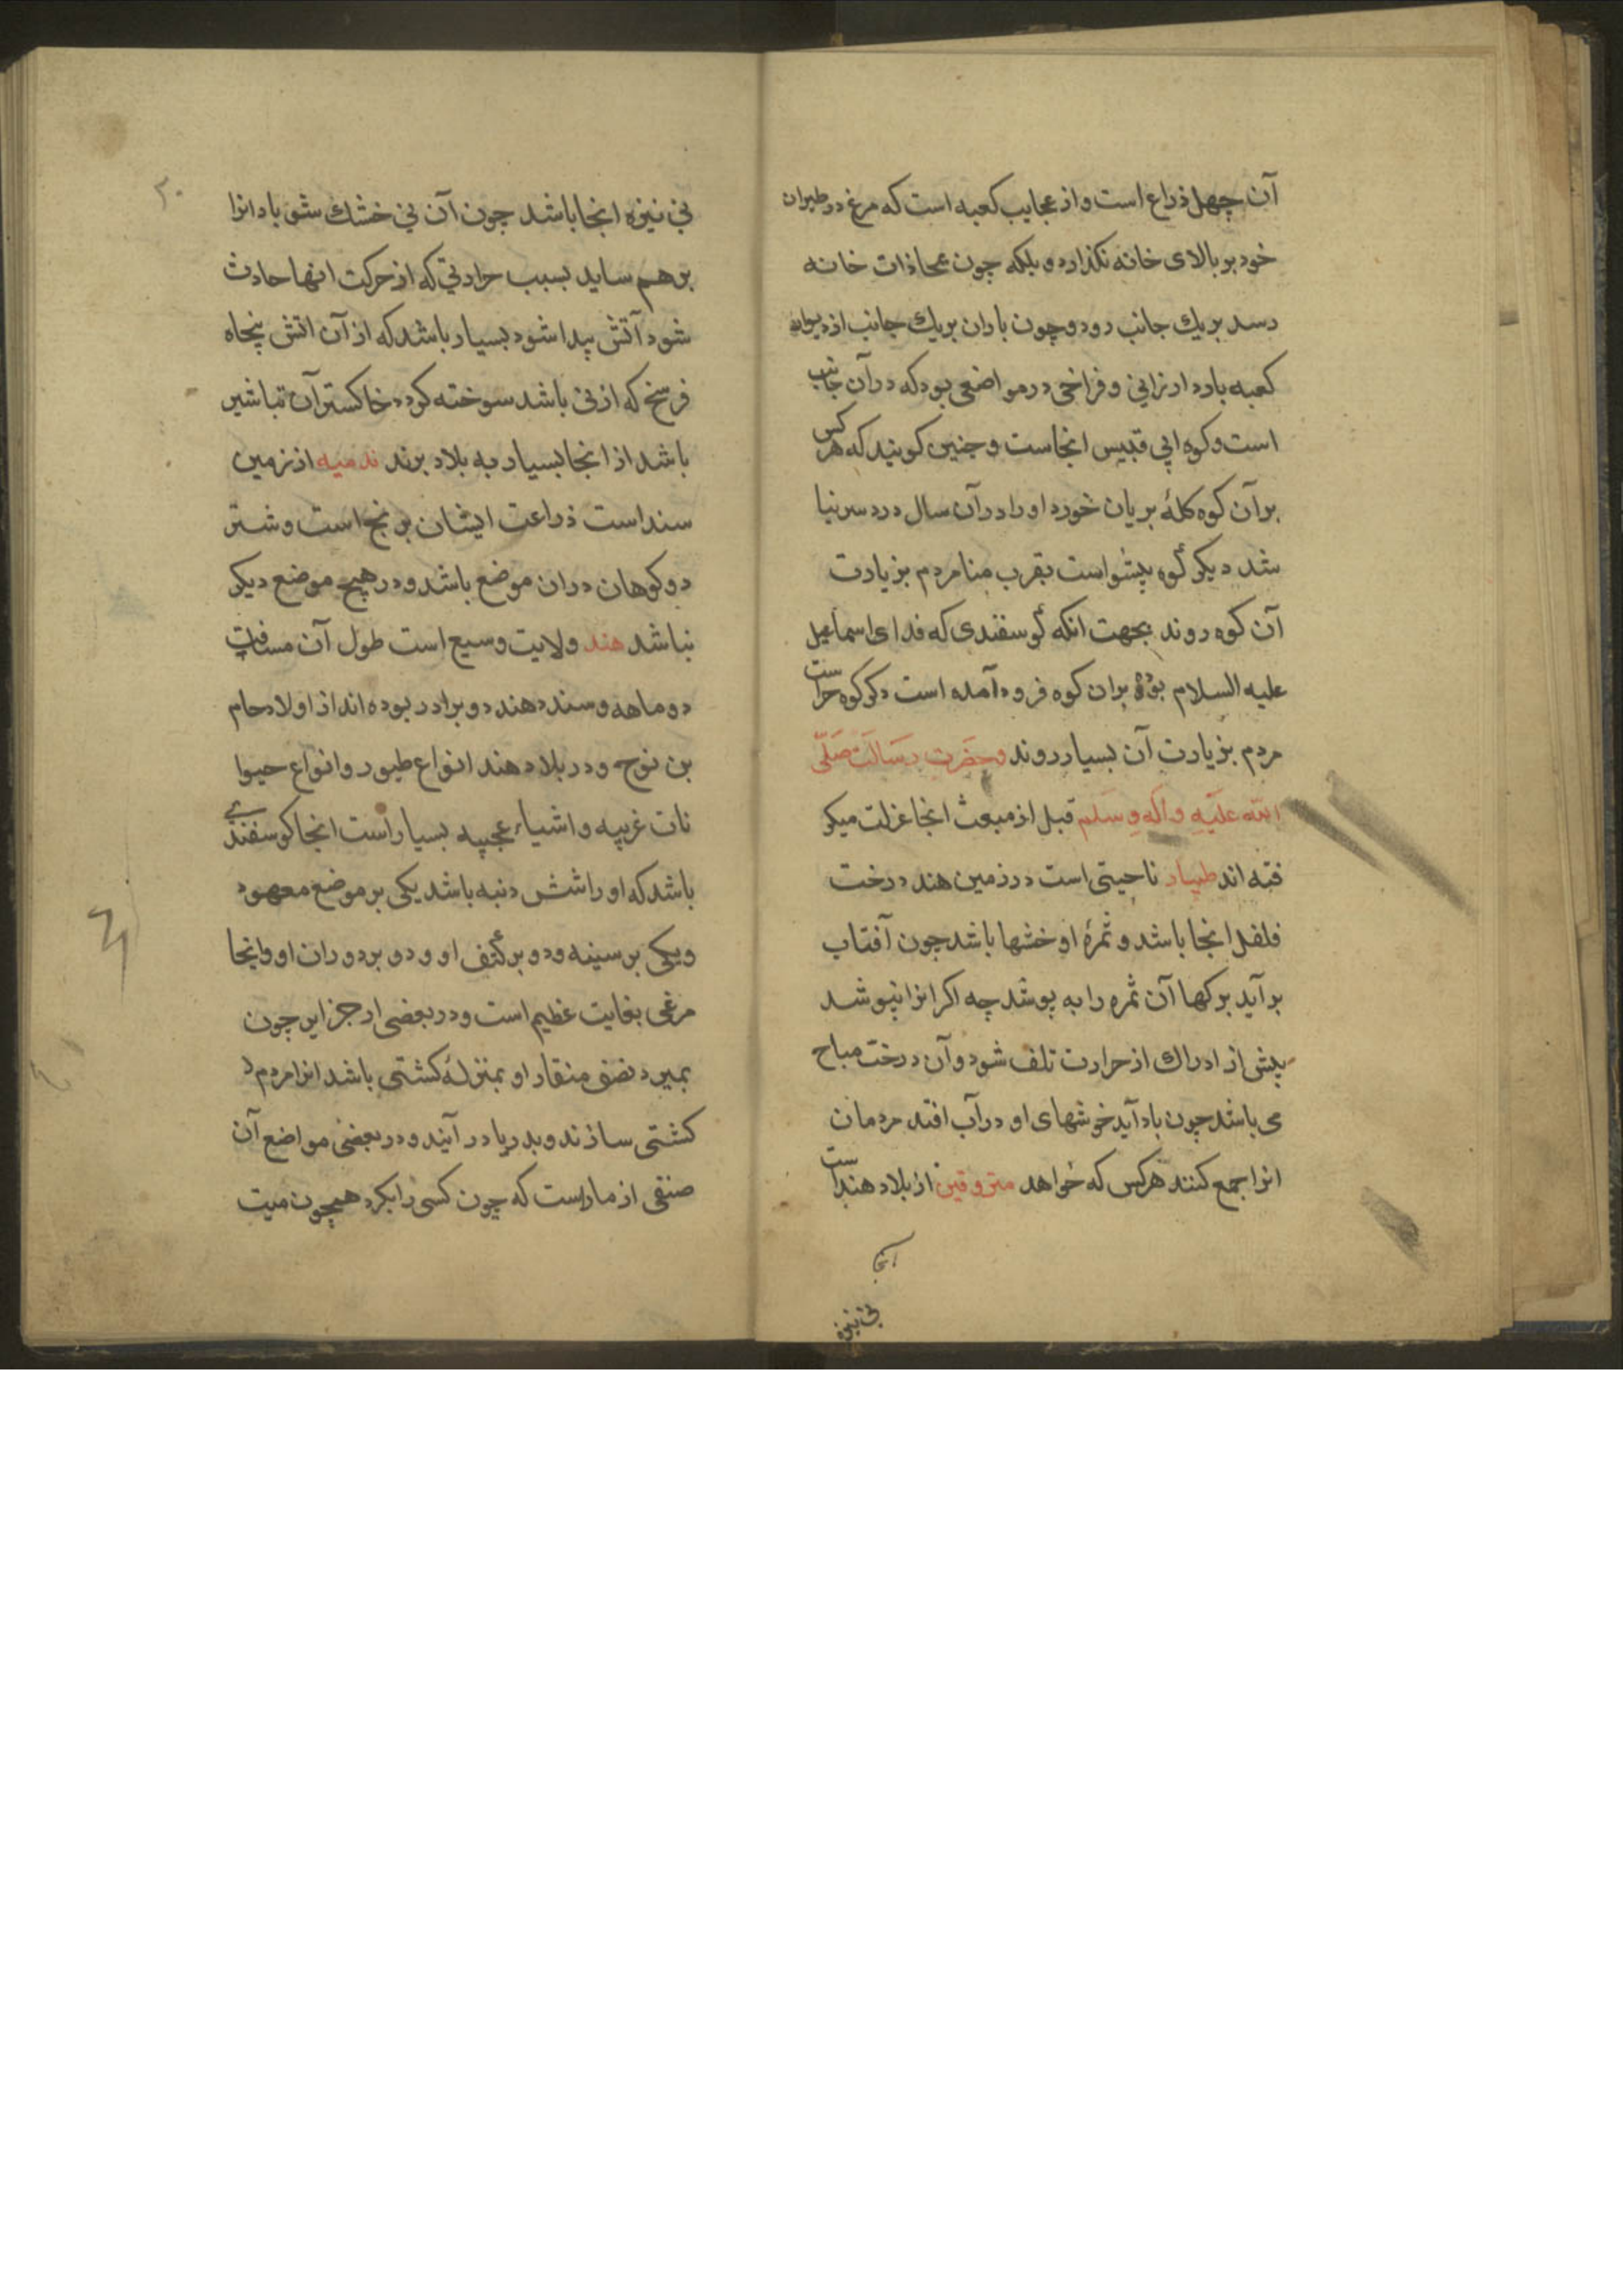 آن چهل ذراع است و از عجایب کعبه است که مرغ در طیران
خود بر بالای خانه نکذارد و بلکه چون بمحاذات خانه
رسد بریك جانب رود و چون باران بریك جانب از دیوار
کعبه بارد ارزانی و فراخی در مواضعی بود که در آن جانب
است و کوه ابی قبیس انجاست و چنین کویند که هر کس
بر آن کوه کلهٔ بریان خورد او را در آن سال درد سر نبا
شد دیکر کوه است بقرب منا مردم بزیارت
آن کوه روند بجهت انکه کوسفندی که فدای اسماعیل
علیه السلام بوده بران کوه فرود آمده است دکر کوه حراست
مردم بزیارت آن بسیار روند و حضرت رسالت صلی
الله علیه و آله و سلم قبل از مبعث انجا عزلت میکر
فته اند ناحیتی است در زمین هند درخت
فلفل انجا باشد و ثمرهٔ او خشها باشد چون آفتاب
بر آید برکها آن ثمره را به پوشد چه اکر انرا نپوشد
پیش از ادراك از حرارت تلف شود و آن درخت مباح
می باشد چون باد آید خوشهای او در آب افتد مردمان
انرا جمع کنند هر کس که خواهد از بلاد هنداست
انجا
نی نیزه
۲۰
نی نیزه انجا باشد چون آن نی خشك شود باد انرا
برهم ساید بسبب حرارتی که از حرکت انها حادث
شود آتش پیدا شود بسیار باشد که از آن اتش پنجاه
فرسخ که از نی باشد سوخته کردد خاکستر آن تباشیر
باشد از انجا بسیار به بلاد برند ندمیه از زمین
سنداست زراعت ایشان برنج است و شتر
دو کوهان دران موضع باشد و در هیچ موضع دیکر
نباشد هند ولایت وسیع است طول آن مسافت
دو ماهه و سند و هند دو برادر بوده اند از اولاد حام
بن نوح و در بلاد هند انواع طیور و انواع حیوا
نات غریبه و اشیاء عجیبه بسیار است انجا کوسفندی
باشد که او را شش دنبه باشد یکی بر موضع معهود
و یکی بر سینه و دو بر کتف او و دو بر دو ران او و انجا
مرغی بغایت عظیم است و در بعضی از جزایر چون
بمیرد نصف منقار او بمنزلهٔ کشتی باشد انرا مردم
کشتی سازند و بدریا در آیند و در بعضی مواضع آن
صنفی از ماراست که چون کسی را بکزد همچون میت